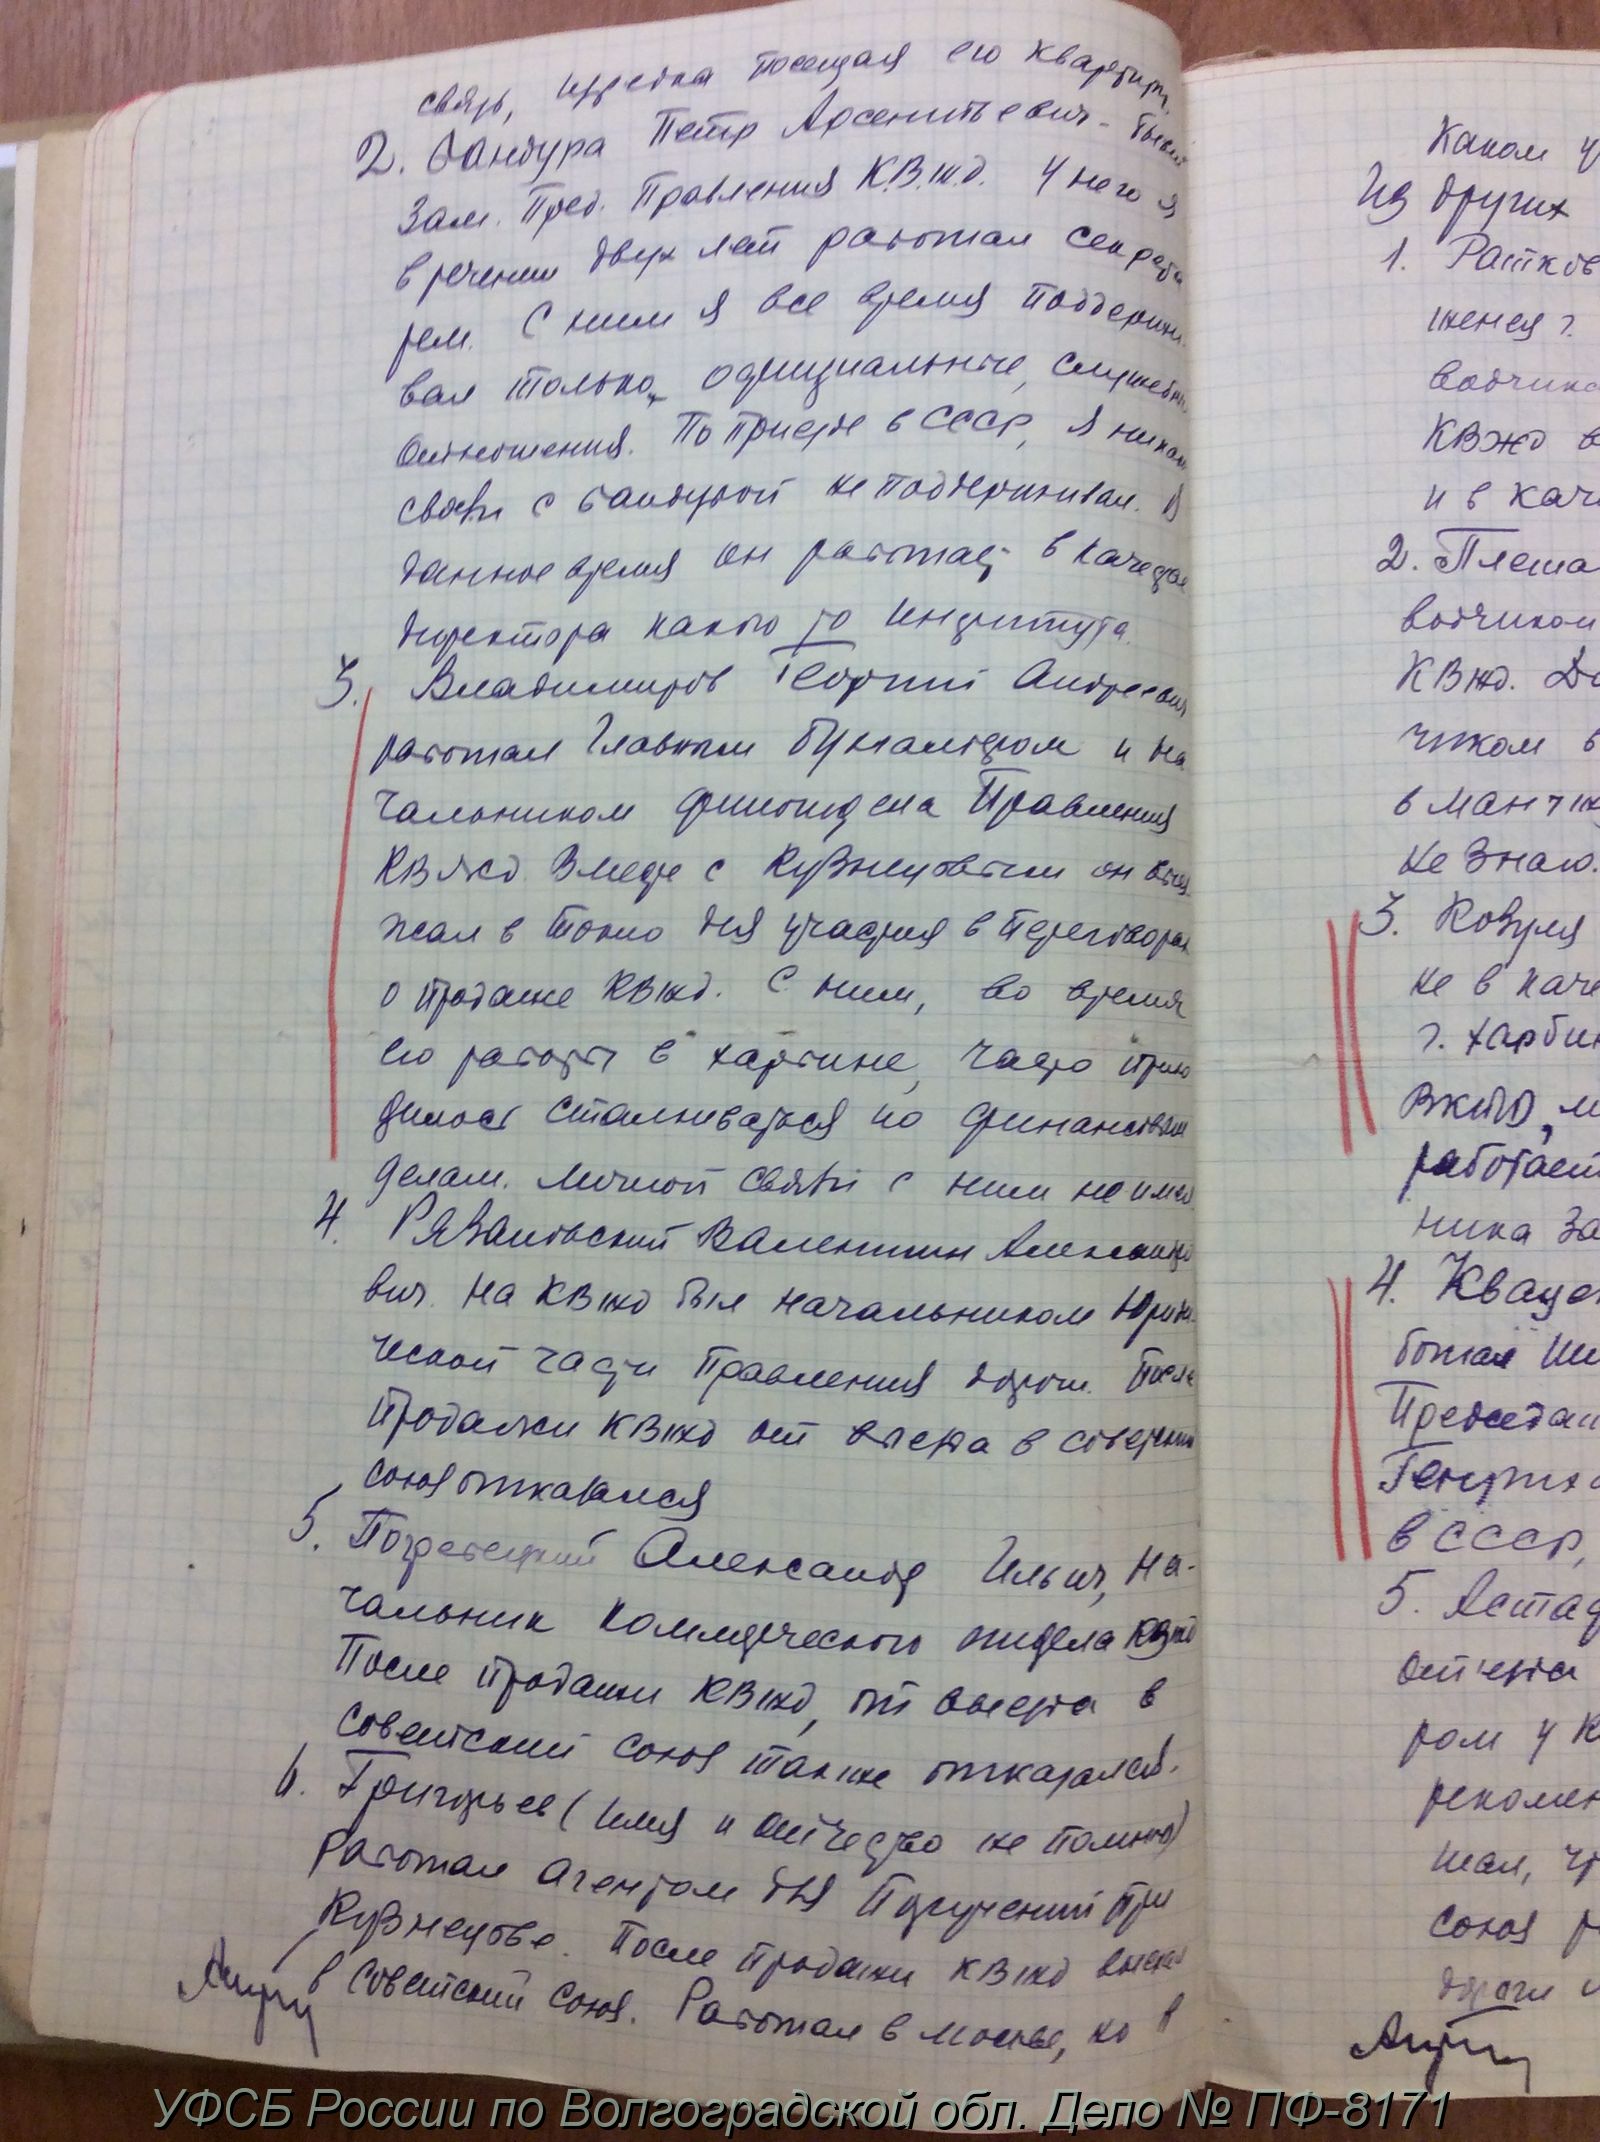 связь, изредка посещая его квартиру.
2. Бандура Петр Арсентьевич - бывш
Зам. Пред. Правления К.В.ж.д. У него я
в течении двух лет работал секрета
рем. С ним я все время поддержи
вал только официальные, служебные
отношения. По приезде в СССР, я никак
связи с Бандурой не поддерживал. В
данное время он работает в качестве
директора какого то института.
3. Владимиров Георгий Андреевич
работал Главным бухгалтером и на
чальником финотдела Правления
КВжд. Вместе с Кузнецовым он выез
жал в Токио для участия в переговорах
о продаже КВжд. С ним, во время
его работы в Харбине, часто прихо
дилось сталкиваться по финансовым
делам. Личной связи с ним не имел.
4. Рязановский Валентин Александро
вич. На КВжд был начальником Юриди
ческой части Правления дороги. После
продажи КВжд от выезда в советский
союз отказался
5. Погребецкий Александр Ильич, На-
чальник коммерческого отдела КВжд
После продажи КВжд, от выезда в
советский союз также отказался.
6. Григорьев (имя и отчество не помню)
Работал агентом для поручений при
Кузнецове. После продажи КВжд выехал
в Советский союз. Работал в Москве, но в
Каком у
Из других
1. Ратков
женея г.
водчика
КВжд в
и в каче
2. Плеша
водчиком
КВжд. До
чиком в
в Манчж
не знаю.
3. Козуля
не в каче
г. Харбин
работает
ника За
4. Квацек
ботал
Председат
Генриха
в СССР,
5. Астаф
отчества
ром у К
рекомен
шал, чт
союз р
дороги и
УФСБ России по Волгоградской обл. Дело № ПФ-8171